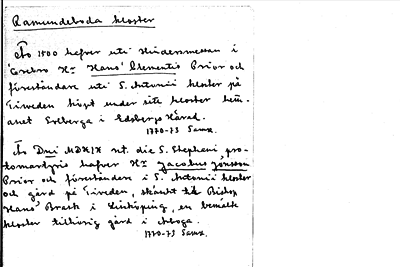 Ramundeboda kloster
Åo 1500 hafver uti Hindersmessan i
Örebro Hr Hans Clementis Prior och
föreståndare uti S. Antonii kloster på
Tiveden köpt under sitt kloster hem-
anet Solberga i Edsbergs Härad.
1770-73 Saml.
Åo Dni MDXIX nt. die S. Stephani pro-
tomartyris hafver Hr Jacobus Jönsson
Prior och föreståndare i S. Antonii kloster
och gård på Tiveden, skänkt till Biskop
Hans Brask i Linköping, en bemälte
kloster tillhörig gård i Arboga.
1770-73 Saml.